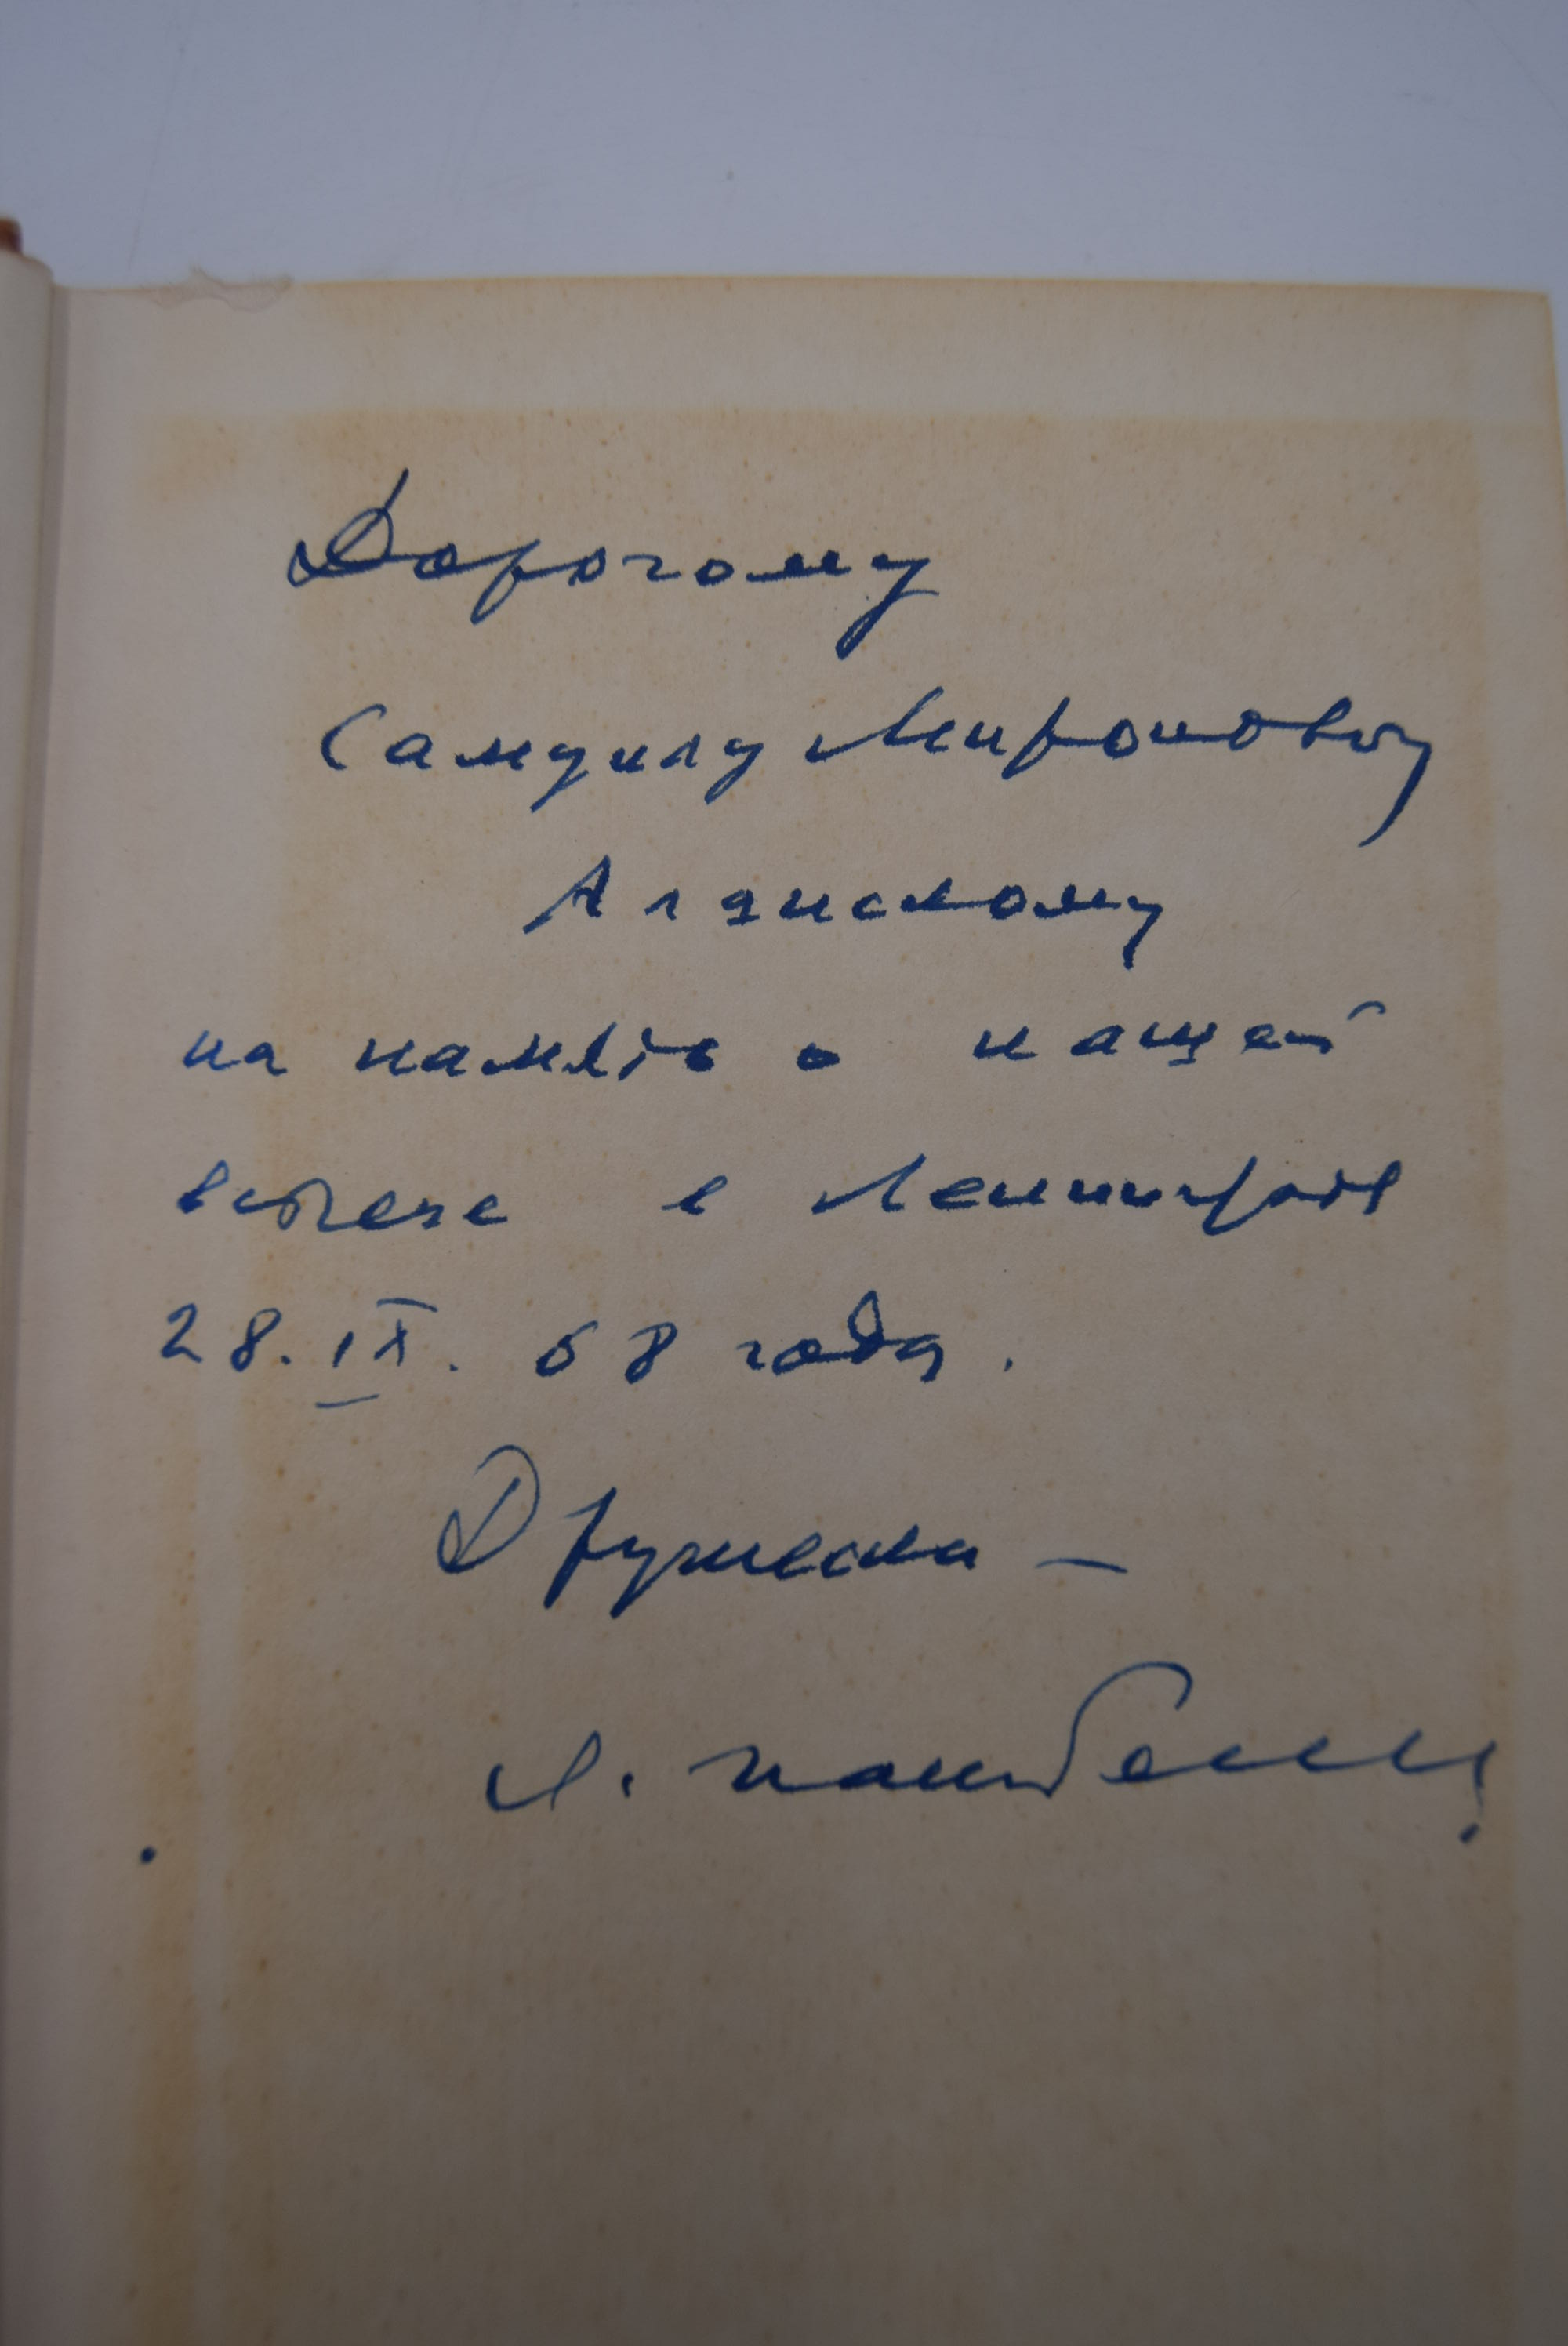 Дорогому
Самуилу Мироновичу
Алянскому
на память о нашей
встрече в Ленинграде
28.IX.68 года.
Дружески —